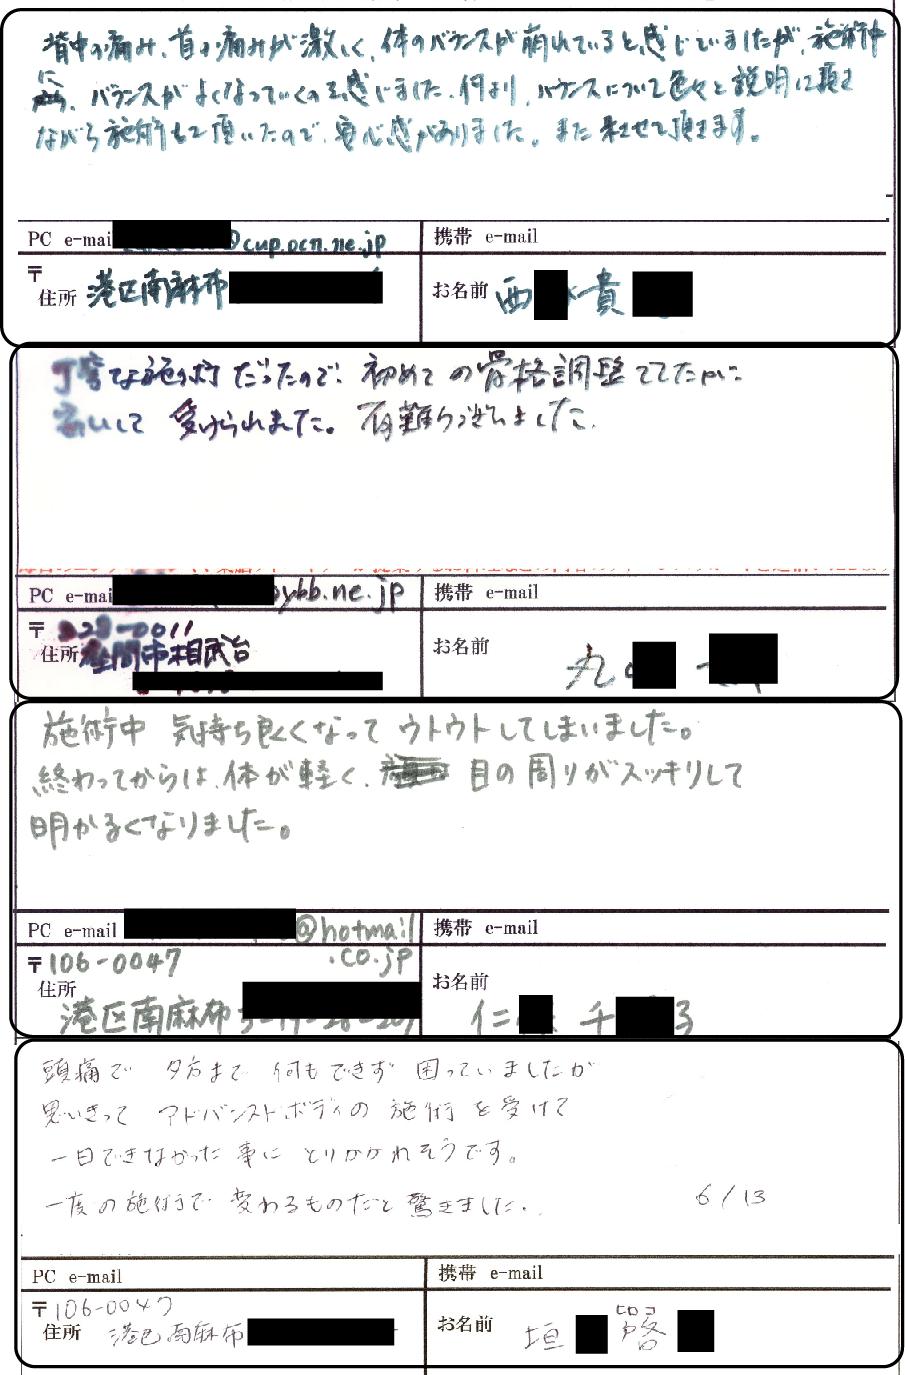 背中の痛み、首の痛みが激しく、体のバランスが崩れていると感じていましたが、施術中
に、バランスがよくなっていくのを感じました。何より、バランスについて色々と説明に頂き
ながら施術もして頂いたので、安心感がありました。また来させて頂きます。
PC e-mai @cup.ocn.ne.jp
携帯 e-mail
〒
住所 港区南麻布
お名前 西 貴
丁寧な施術だったので、初めての骨格調整でしたが
安心して受けられました。有難うございました。
PC e-mai ybb.ne.jp
携帯 e-mail
〒 228-0011
住所 座間市相武台
お名前 丸
施術中 気持ち良くなって ウトウトしてしまいました。
終わってからは、体が軽く、目の周りがスッキリして
明かるくなりました。
PC e-mail @hotmail
.co.jp
携帯 e-mail
〒106-0047
住所
港区南麻布
お名前
仁 千
頭痛で 夕方まで 何もできず 困っていましたが
思いきって アドバンストボディの 施術を受けて
一日できなかった事に とりかかれそうです。
一度の施術で 変わるものだと 驚きました。
6/13
PC e-mail
携帯 e-mail
〒106-0047
住所 港区南麻布
お名前 垣 啓